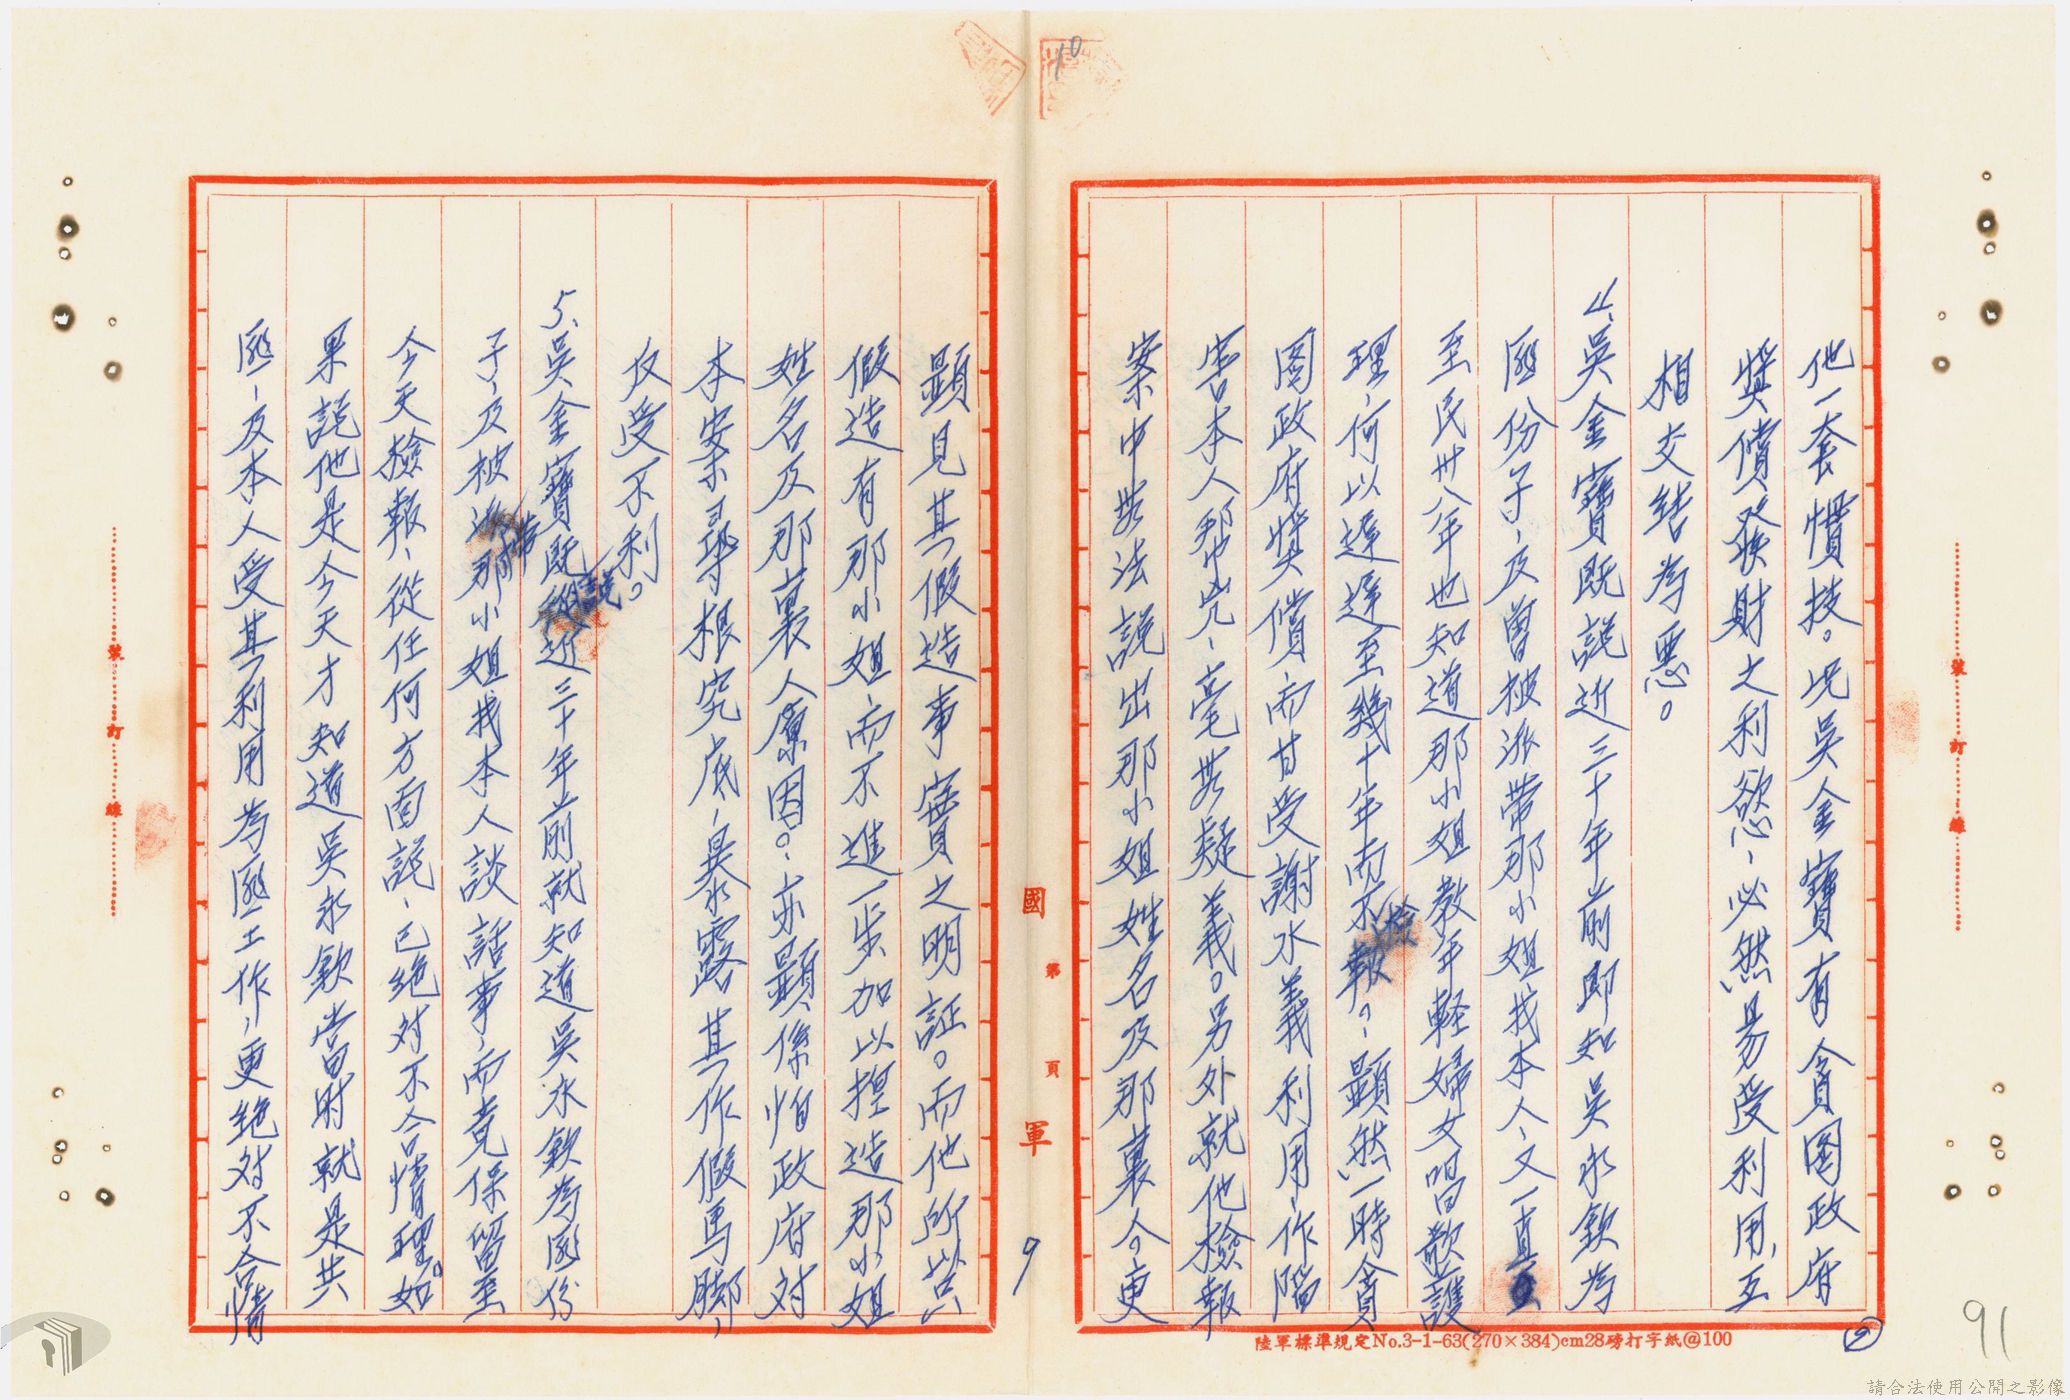 他一套慣技。况吳金寶有貪图政府
獎償发財之利慾、必然易受利用、互
相交結為惡。
4、吳金寶既説近三十年前即知吳水欽為
匪份子、及曾被派帶那小姐找本人、又一直
至民卅八年也知道那小姐教年軽婦女唱歌護
理、何以遲遲至幾十年而不檢報?、顯然一時貪
图政府獎償、而甘受謝水義利用、作陷
害本人帮兇、毫無疑義。另外就他檢報
案中無法説出那小姐姓名及那裏人。更
顯見其假造事實之明証。而他所以
假造有那小姐、而不進一步加以揑造那小姐
姓名及那裏人原因。、亦顯係怕政府对
本案尋根究底、暴露其作假馬脚、
反受不利。
5、吳金寶既説近三十年前就知道吳水欽為匪份
子、及被派帶那小姐找本人談話事、而竟保留至
今天撿報、從任何方面説、已絕对不合情理。如
果説他是今天才知道吳水欽當时就是共
匪、及本人受其利用為匪工作、更絕对不合情
裝 訂 線
裝 訂 線
國 軍
第 頁
9
10
91
9
陸軍標準規定No.3-1-63(270×384)cm28磅打字紙@100
請合法使用公開之影像